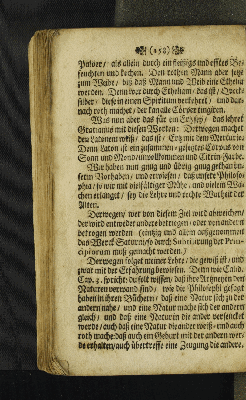 (158)
Pulver/ als allein durch ein fleißigs und efftes Be-
feuchten und kochen. Den rothen Mann aber setze
zum Weibe/ biß daß Mann und Weib eine Ethelia
werden. Denn wer durch Etheliam/ das ist/ Queck-
silber/ diese in einen Spiritum verkehret/ und das
nach roth machet/ der kan alle Cörper tingiren.
Was nun aber das für ein Ertz sey/ das lehret
Gratianus mit diesen Worten: Derowegen machet
den Latonem weiß/ das ist/ Ertz mit dem Mercurio
Denn Laton ist ein zusammen-gesetztes Corpus von
Sonn und Mond/unvollkommen und Citrin-Farbe.
Wir haben nun gnug und übrig gnug gethan un-
serm Vorhaben/ und erwiesen/ daß unsere Philoso-
phia/ so wir mit vielfältiger Mühe/ und vielem Wa-
chen erlanget/ sey die Lehre und rechte Warheit der
Alten.
Derowegen/ wer von diesem Ziel wird abweichen/
der wird entweder andere betrügen/ oder von andern
betrogen werden
das Werck Saturni/ so durch
cipiorum muß gemacht werden.)
Derowegen folget meiner Lehre/ die gewiß ist/ und
zwar mit der Erfahrung bewiesen. Denn wie Calid.
Cap. 2. spricht: du solt wissen/ daß ihre Artzneyen den
Naturen verwand sind/ wie die Philosophi gesagt
haben in ihren Büchern/ daß eine Natur sich zu der
andern nahe/ und eine Natur mache sich der andern
gleich/ und daß eine Natur in die ander versencket
werde/ auch daß eine Natur die ander weiß- und auch
roth mache: daß auch ein Geburt mit der andern wer-
de erhalten/ auch übertreffe eine Zeugung die andere.